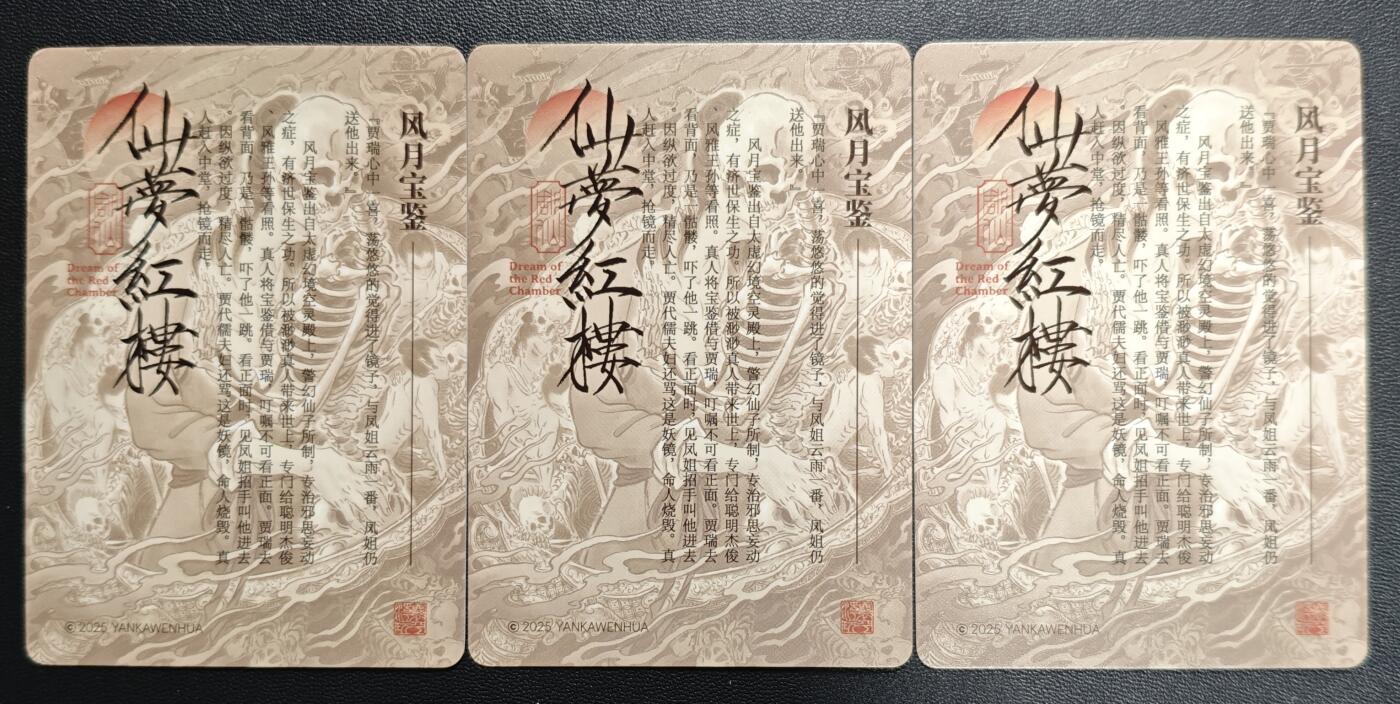 风月宝鉴
『贾瑞心中一喜，荡悠悠的觉得进了镜子，与凤姐云雨一番，凤姐仍
送他出来。』
风月宝鉴出自太虚幻境空灵殿上，警幻仙子所制，专治邪思妄动
之症，有济世保生之功。所以被渺渺真人带来世上，专门给聪明杰俊
、风雅王孙等看照。真人将宝鉴借与贾瑞，叮嘱不可看正面。贾瑞去
看背面，乃是一骷髅，吓了他一跳。看正面时，见凤姐招手叫他进去
。因纵欲过度，精尽人亡。贾代儒夫妇还骂这是妖镜，命人烧毁。真
人赶入中堂，抢镜而走。
仙夢紅樓
Dream of
the Red
Chamber
© 2025 YANKAWENHUA
风月宝鉴
『贾瑞心中一喜，荡悠悠的觉得进了镜子，与凤姐云雨一番，凤姐仍
送他出来。』
风月宝鉴出自太虚幻境空灵殿上，警幻仙子所制，专治邪思妄动
之症，有济世保生之功。所以被渺渺真人带来世上，专门给聪明杰俊
、风雅王孙等看照。真人将宝鉴借与贾瑞，叮嘱不可看正面。贾瑞去
看背面，乃是一骷髅，吓了他一跳。看正面时，见凤姐招手叫他进去
。因纵欲过度，精尽人亡。贾代儒夫妇还骂这是妖镜，命人烧毁。真
人赶入中堂，抢镜而走。
仙夢紅樓
Dream of
the Red
Chamber
© 2025 YANKAWENHUA
风月宝鉴
『贾瑞心中一喜，荡悠悠的觉得进了镜子，与凤姐云雨一番，凤姐仍
送他出来。』
风月宝鉴出自太虚幻境空灵殿上，警幻仙子所制，专治邪思妄动
之症，有济世保生之功。所以被渺渺真人带来世上，专门给聪明杰俊
、风雅王孙等看照。真人将宝鉴借与贾瑞，叮嘱不可看正面。贾瑞去
看背面，乃是一骷髅，吓了他一跳。看正面时，见凤姐招手叫他进去
。因纵欲过度，精尽人亡。贾代儒夫妇还骂这是妖镜，命人烧毁。真
人赶入中堂，抢镜而走。
仙夢紅樓
Dream of
the Red
Chamber
© 2025 YANKAWENHUA